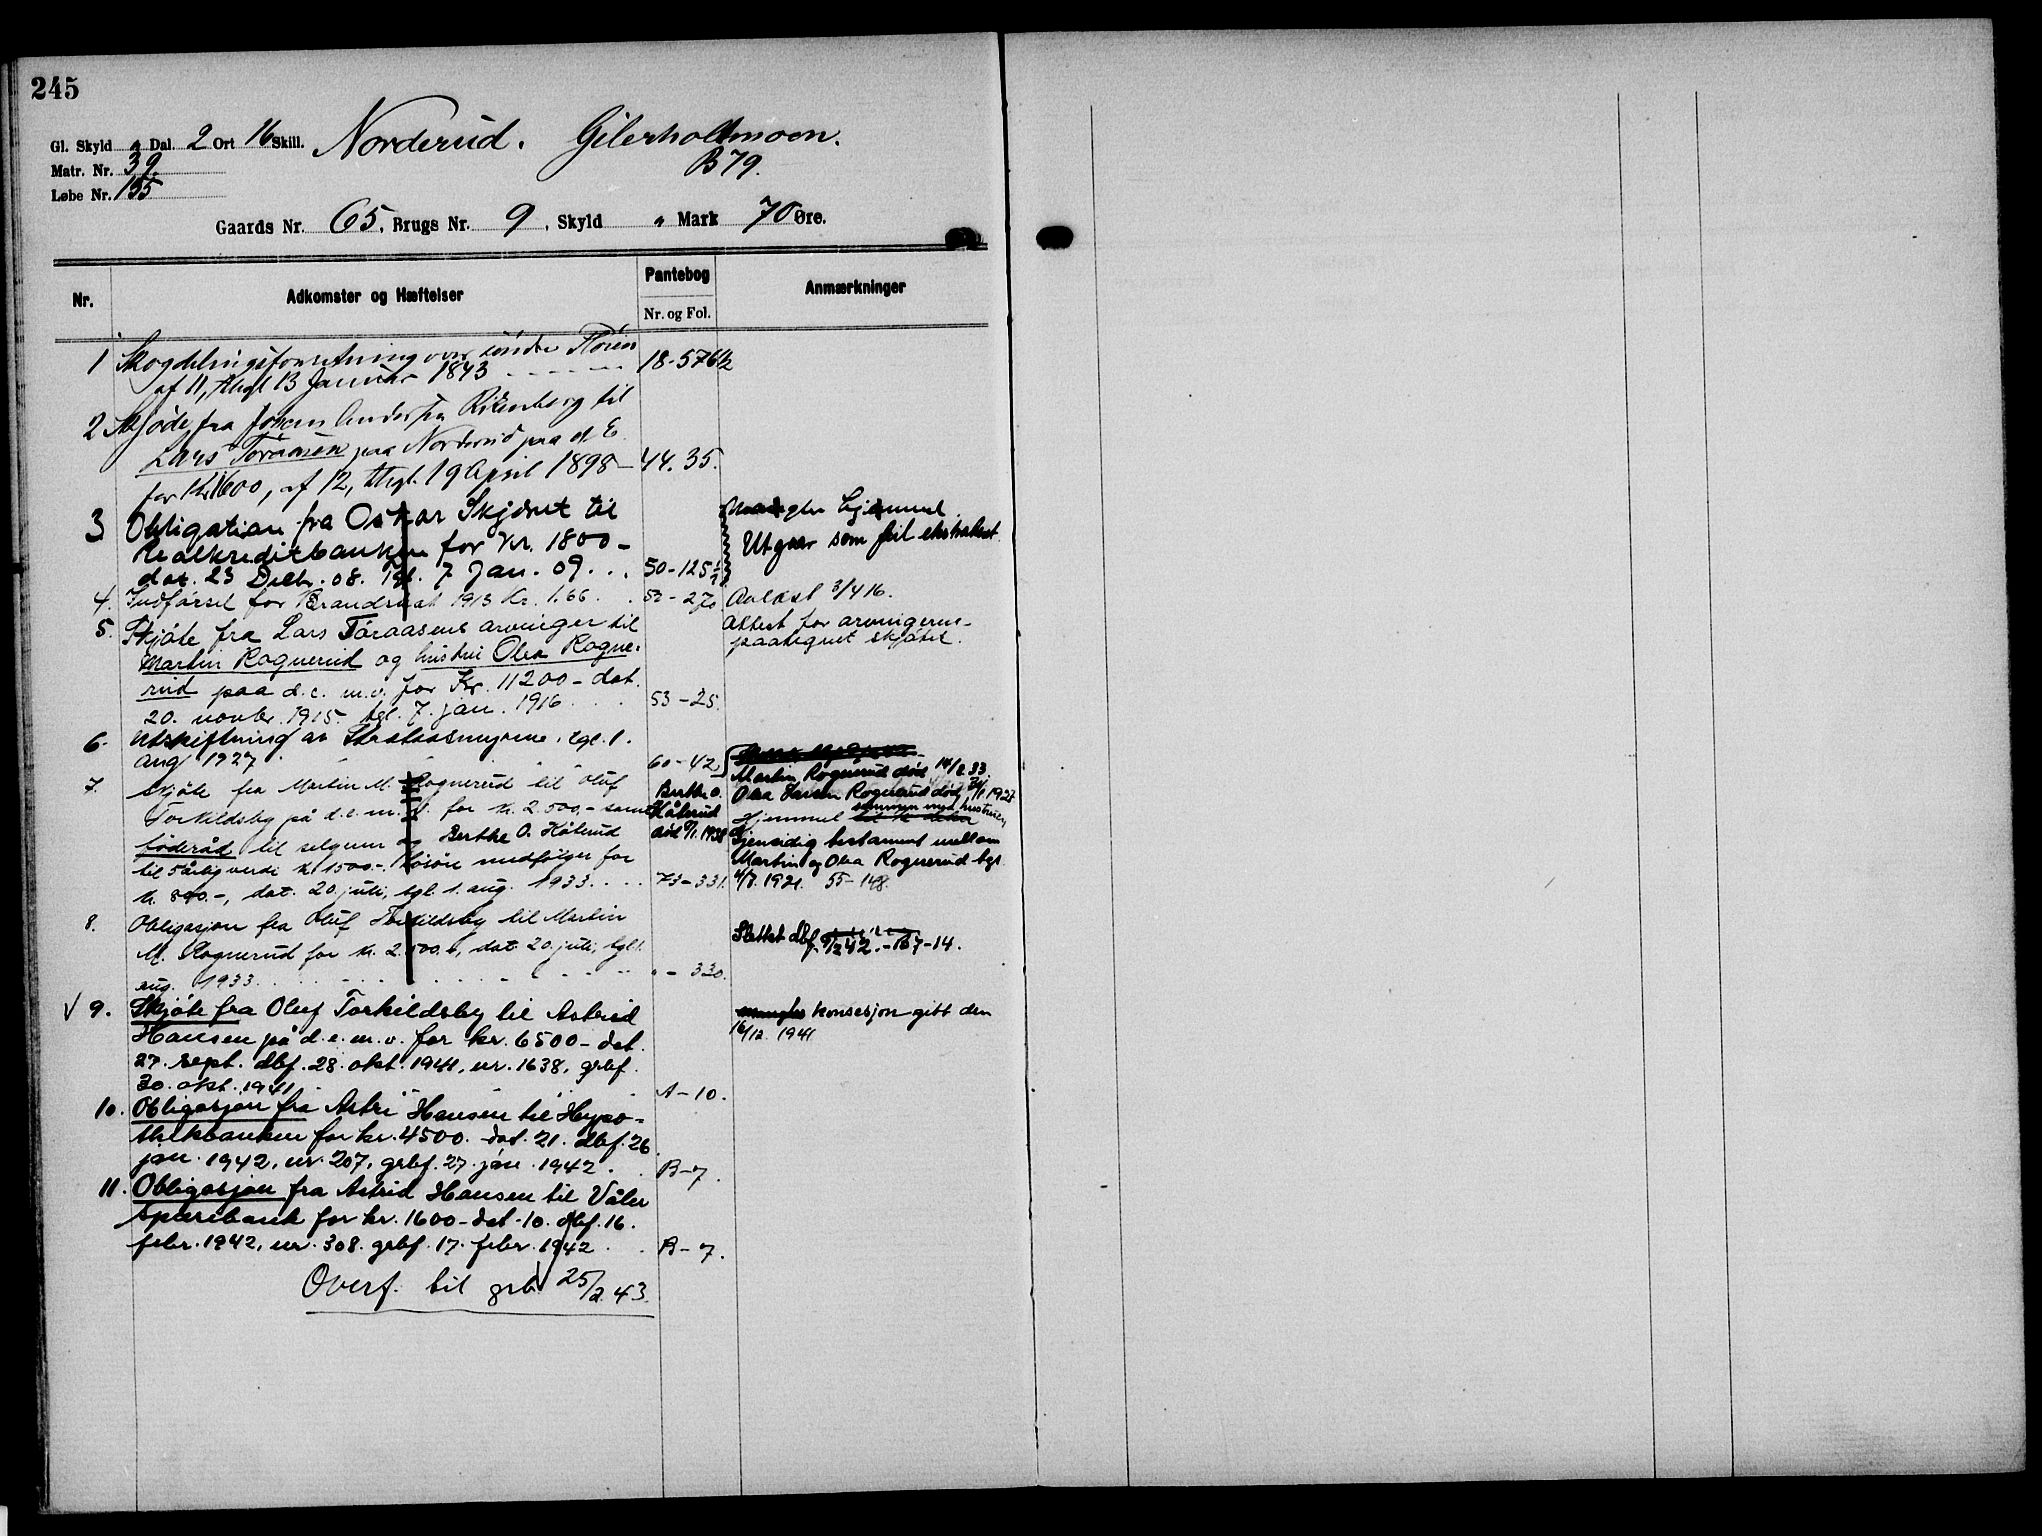 245
Gl. Skyld „ Dal. 2 Ort 16 Skill. Norderud. Gilerholtmoen.
Matr. Nr. 39. B 79.
Løbe Nr. 155
Gaards Nr. 65, Brugs Nr. 9, Skyld „ Mark 70 Øre.
Nr. Adkomster og Hæftelser Pantebog Anmærkninger
Nr. og Fol.
1 Skogdelingsforretning over söndre
af 11, thgl 13 Januar 1843 18-576½
2 Skjøde fra Johan Anders Rismberg til
Lars Töraasen paa Norderud paa d. E.
for Kr 1600, af 12, thgl. 19 April 1898 - 44. 35.
3 Obligation fra Oskar Skjöret til mangler hjemmel.
Realkreditbanken for Kr. 1800 - Utgaar som feil ekstrahert
dat. 23 Decbr. 08. Tgl. 7 Jan. 09. . . 50-125½
4. Indförsel for Brandskat 1913 Kr. 1.66. . 52-270 Avlæst 3/4 16.
5. Skjöte fra Lars Töraasens arvinger til Attest for arvingerne
Martin Rognerud og hustru Olea Rogne- paategnet skjötet.
rud paa d.e. m.v. for Kr. 11200 - dat.
20. novbr. 1915. tgl. 7. jan. 1916 . . . 53-25.
6. Utskiftning av Strataasmyrene, tgl. 1.
aug 1927 60-42
Martin Rognerud död 14/2 33
7. Skjöte fra Martin M. Rognerud til Oluf Berthe O. Olea Hansen Rognerud död 1928
Torkildsby på d.e.m.v. for kr. 2.500,- samt Håterud Hjemmel sammen med hustruen
föderåd til selgeren og Berthe O. Håterud död 9/1. 1938 Gjensidig testament mellom
til 5årlig verdi kr 1500.-. Lösöre medfölger for Martin og Olea Rognerud tgl.
kr. 800.-, dat. 20 juli, tgl. 1. aug. 1933. . . . 73-331. 4/7. 1921. 55-148.
8. Obligasjon fra Oluf Torkildsby til Martin
M. Rognerud for kr. 2.500.-, dat 20 juli, tgl 1. Slettet dbf. 9/2 42. - 167-14.
aug. 1933. . . . „ - 330.
√ 9. Skjöte fra Oluf Torkildsby til Astrid mangler konsesjon gitt den
Hansen på d.e.m.v. for kr. 6500 - dat. 16/12. 1941
27. sept. dbf. 28. okt. 1941, nr. 1638, grbf.
30. okt. 1941 A-10.
10. Obligasjon fra Astri Hansen til Hypo-
thekbanken for kr. 4500. dat. 21. dbf. 26
jan. 1942, nr. 207, grbf. 27. jan. 1942. B-7.
11. Obligasjon fra Astrid Hansen til Våler
sparebank for kr. 1600 - dat. 10. dbf. 16.
febr. 1942, nr. 308. grbf. 17. febr. 1942. . B-7.
Overf. til grb 25/2. 43.